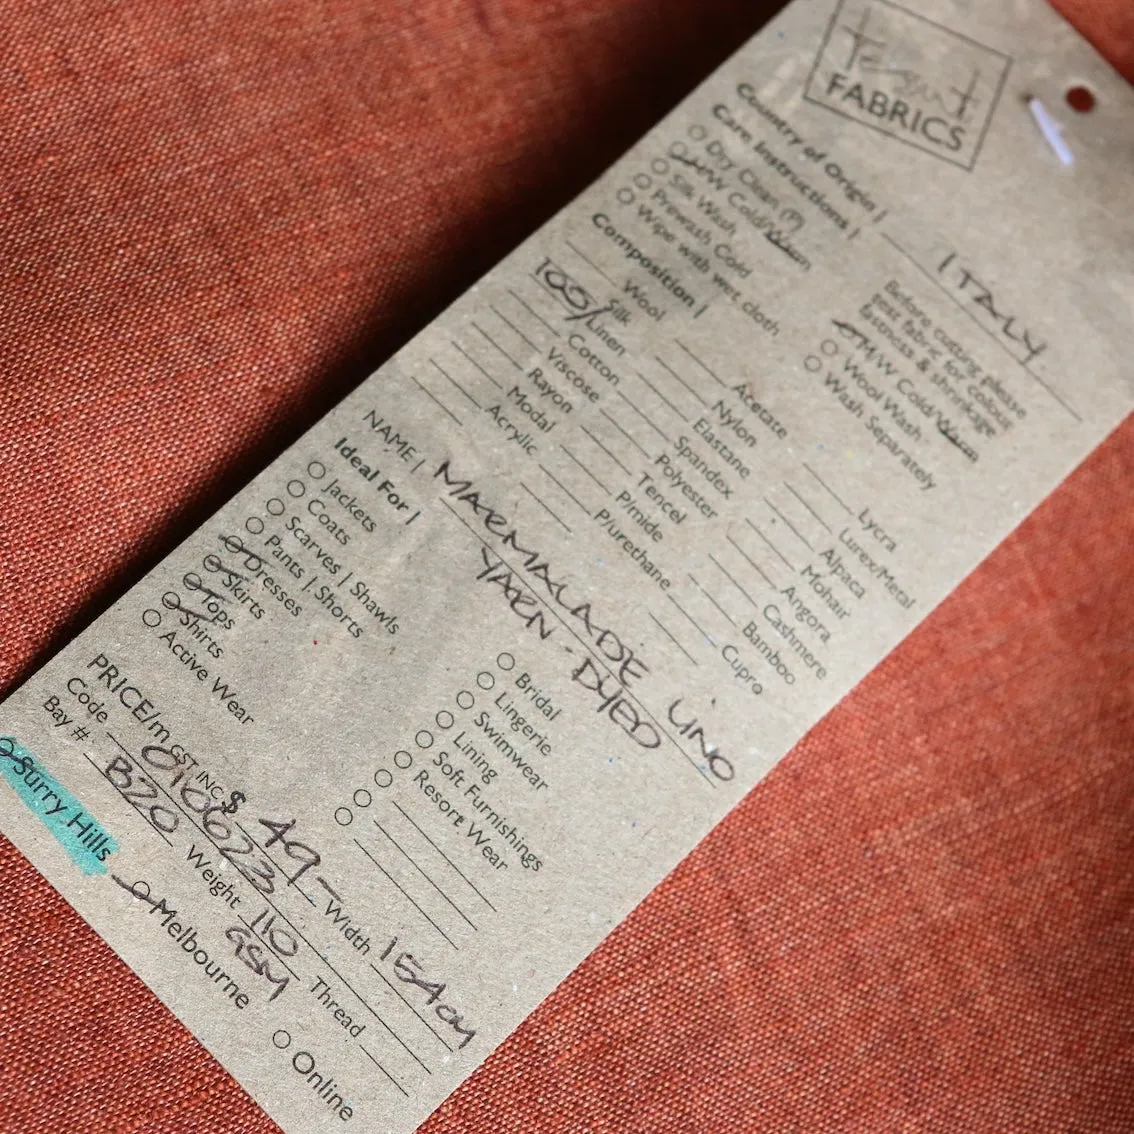 Tessuti
FABRICS
Country of Origin | ITALY
Care Instructions |
Dry Clean (P)
M/W Cold/Warm
Silk Wash
Prewash Cold
Wipe with wet cloth
Before cutting please
post fabric for colour
fastness & shrinkage
M/W Cold/Warm
Wool Wash
Wash Separately
Composition |
Wool
Silk
100% Linen
Cotton
Viscose
Rayon
Modal
Acrylic
Acetate
Nylon
Elastane
Spandex
Polyester
Tencel
P/mide
P/urethane
Lycra
Lurex/Metal
Alpaca
Mohair
Angora
Cashmere
Bamboo
Cupro
NAME | MARMALADE LINO
YARN-DYED
Ideal For |
Jackets
Coats
Scarves | Shawls
Pants | Shorts
Dresses
Skirts
Tops
Shirts
Active Wear
Bridal
Lingerie
Swimwear
Lining
Soft Furnishings
Resort Wear
PRICE/m GST INC. $ 49- Width 154cm
Code 010623
Bay # B20 Weight 110 GSM Thread
Surry Hills Melbourne Online